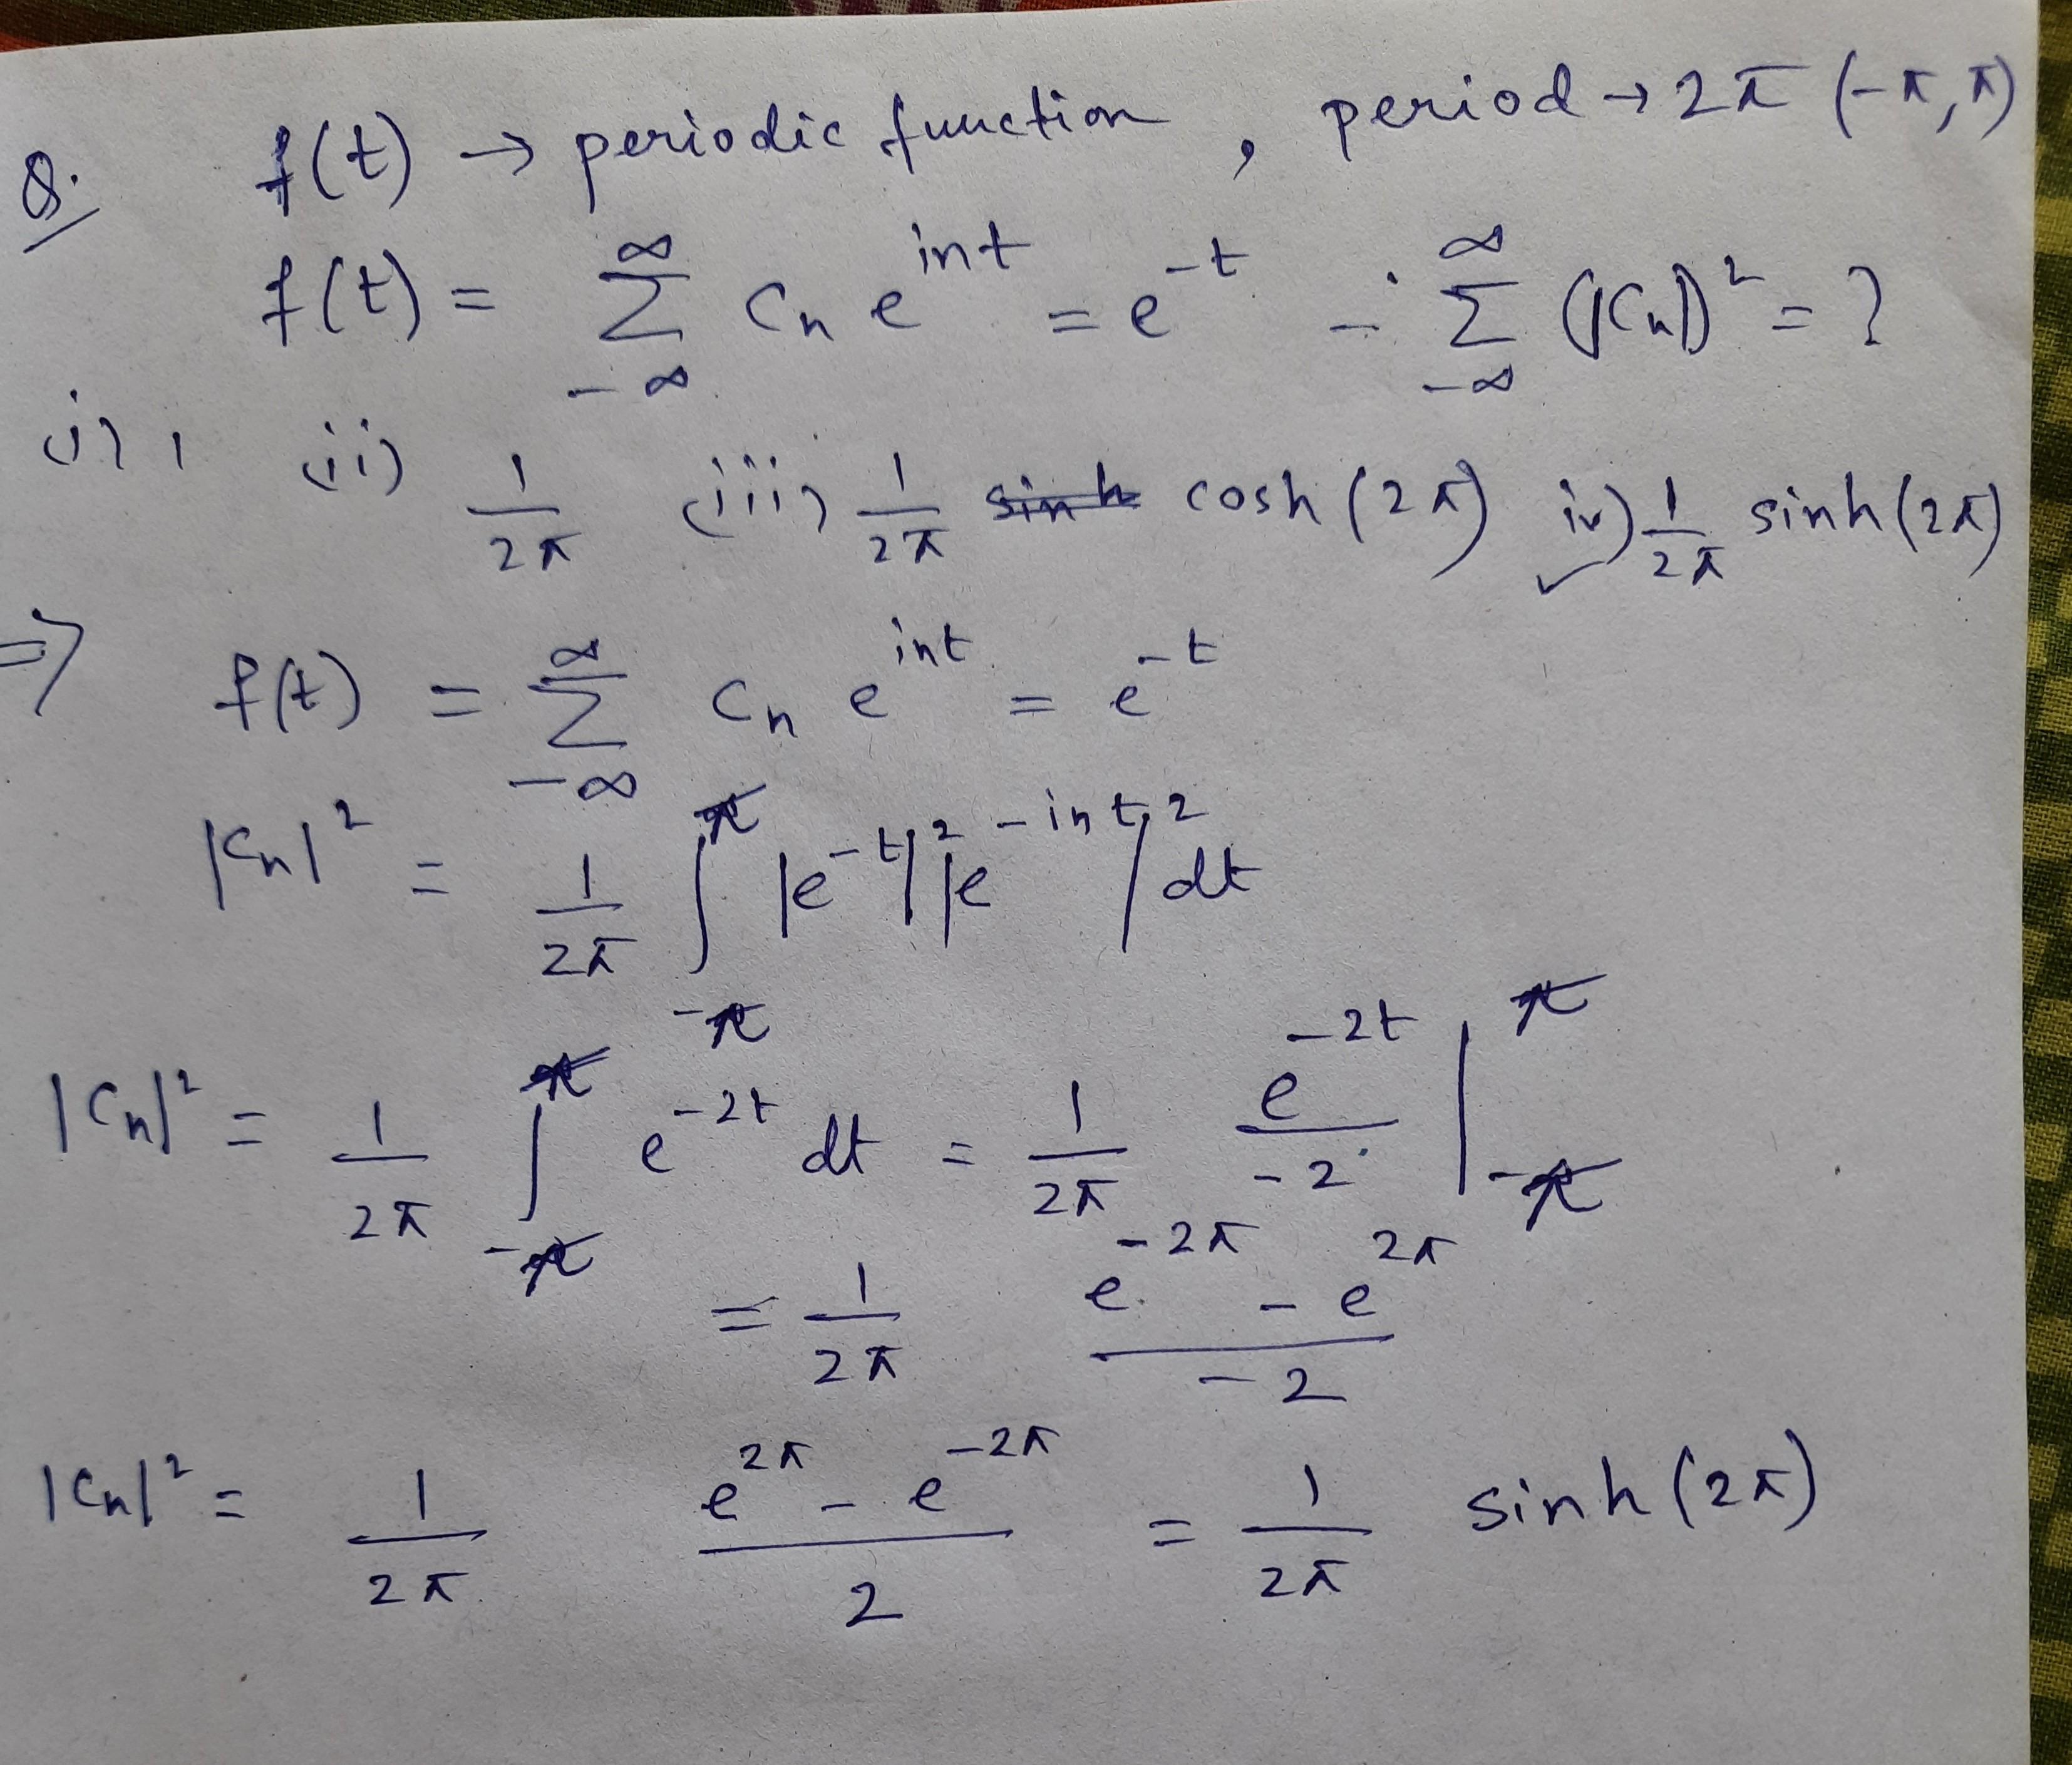 Q. f(t) → periodic function, period → 2π (-π, π)
f(t) = ∑_{-∞}^{∞} Cn e^{int} = e^{-t} ∴ ∑_{-∞}^{∞} (|Cn|)² = ?
(i) 1 (ii) 1/2π (iii) 1/2π sinh cosh (2π) iv) 1/2π sinh (2π)
⇒ f(t) = ∑_{-∞}^{∞} Cn e^{int} = e^{-t}
|Cn|² = 1/2π ∫_{-π}^{π} |e^{-t}|² |e^{-int}|² dt
|Cn|² = 1/2π ∫_{-π}^{π} e^{-2t} dt = 1/2π e^{-2t}/-2 |_{-π}^{π}
= 1/2π (e^{-2π} - e^{2π})/-2
|Cn|² = 1/2π (e^{2π} - e^{-2π})/2 = 1/2π sinh (2π)